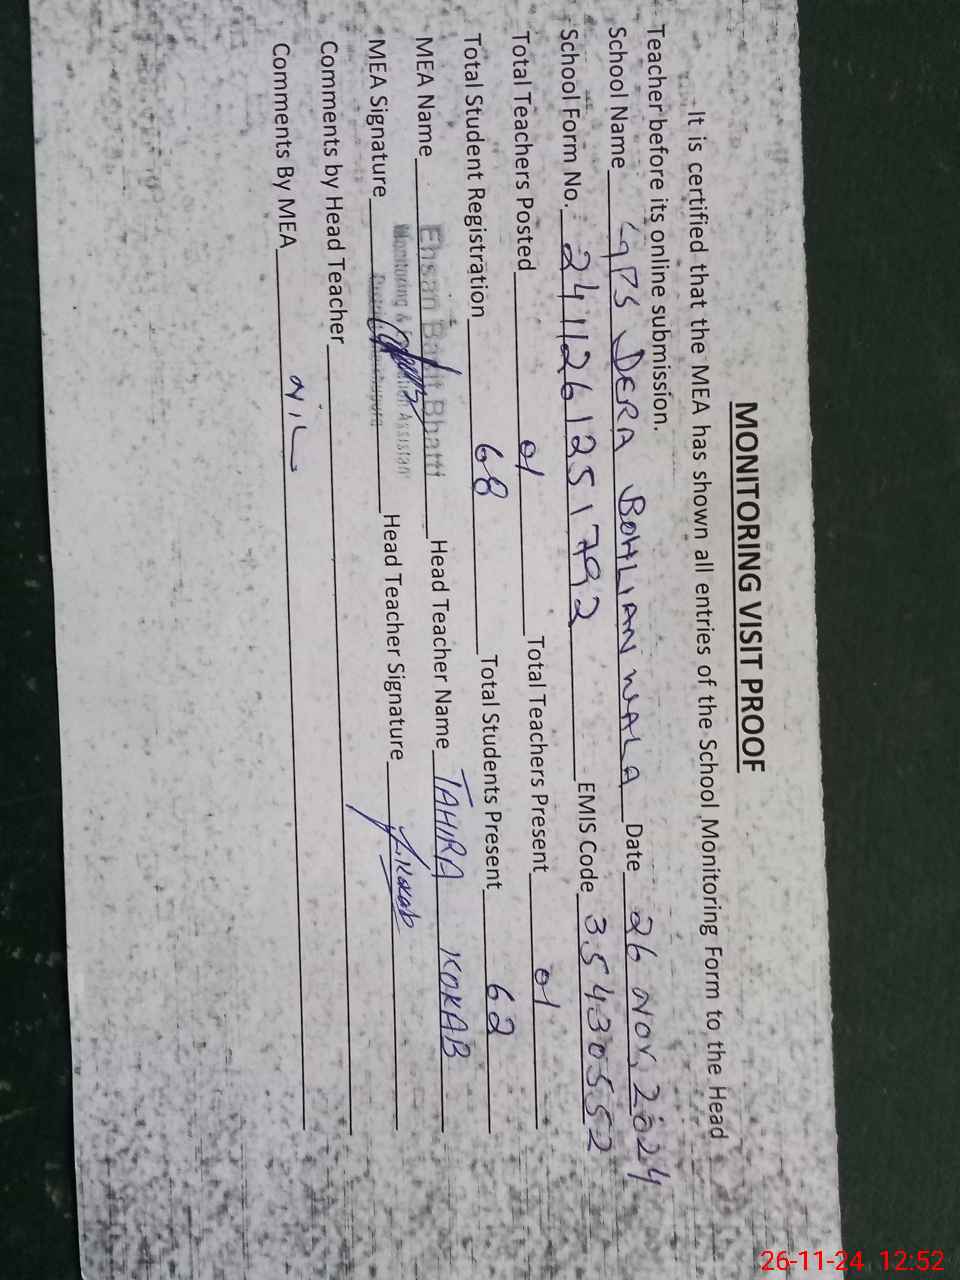 MONITORING VISIT PROOF
It is certified that the MEA has shown all entries of the School Monitoring Form to the Head
Teacher before its online submission.
School Name GPS DERA BOHLIAN WALA Date 26 Nov, 2024
School Form No. 2411261251792 EMIS Code 35430552
Total Teachers Posted 01 Total Teachers Present 01
Total Student Registration 68 Total Students Present 62
MEA Name Ehsan Bhatti Head Teacher Name TAHIRA KOKAB
Monitoring & Assistan
MEA Signature Head Teacher Signature T.Kokab
Comments by Head Teacher
Comments By MEA NIL
26-11-24 12:52